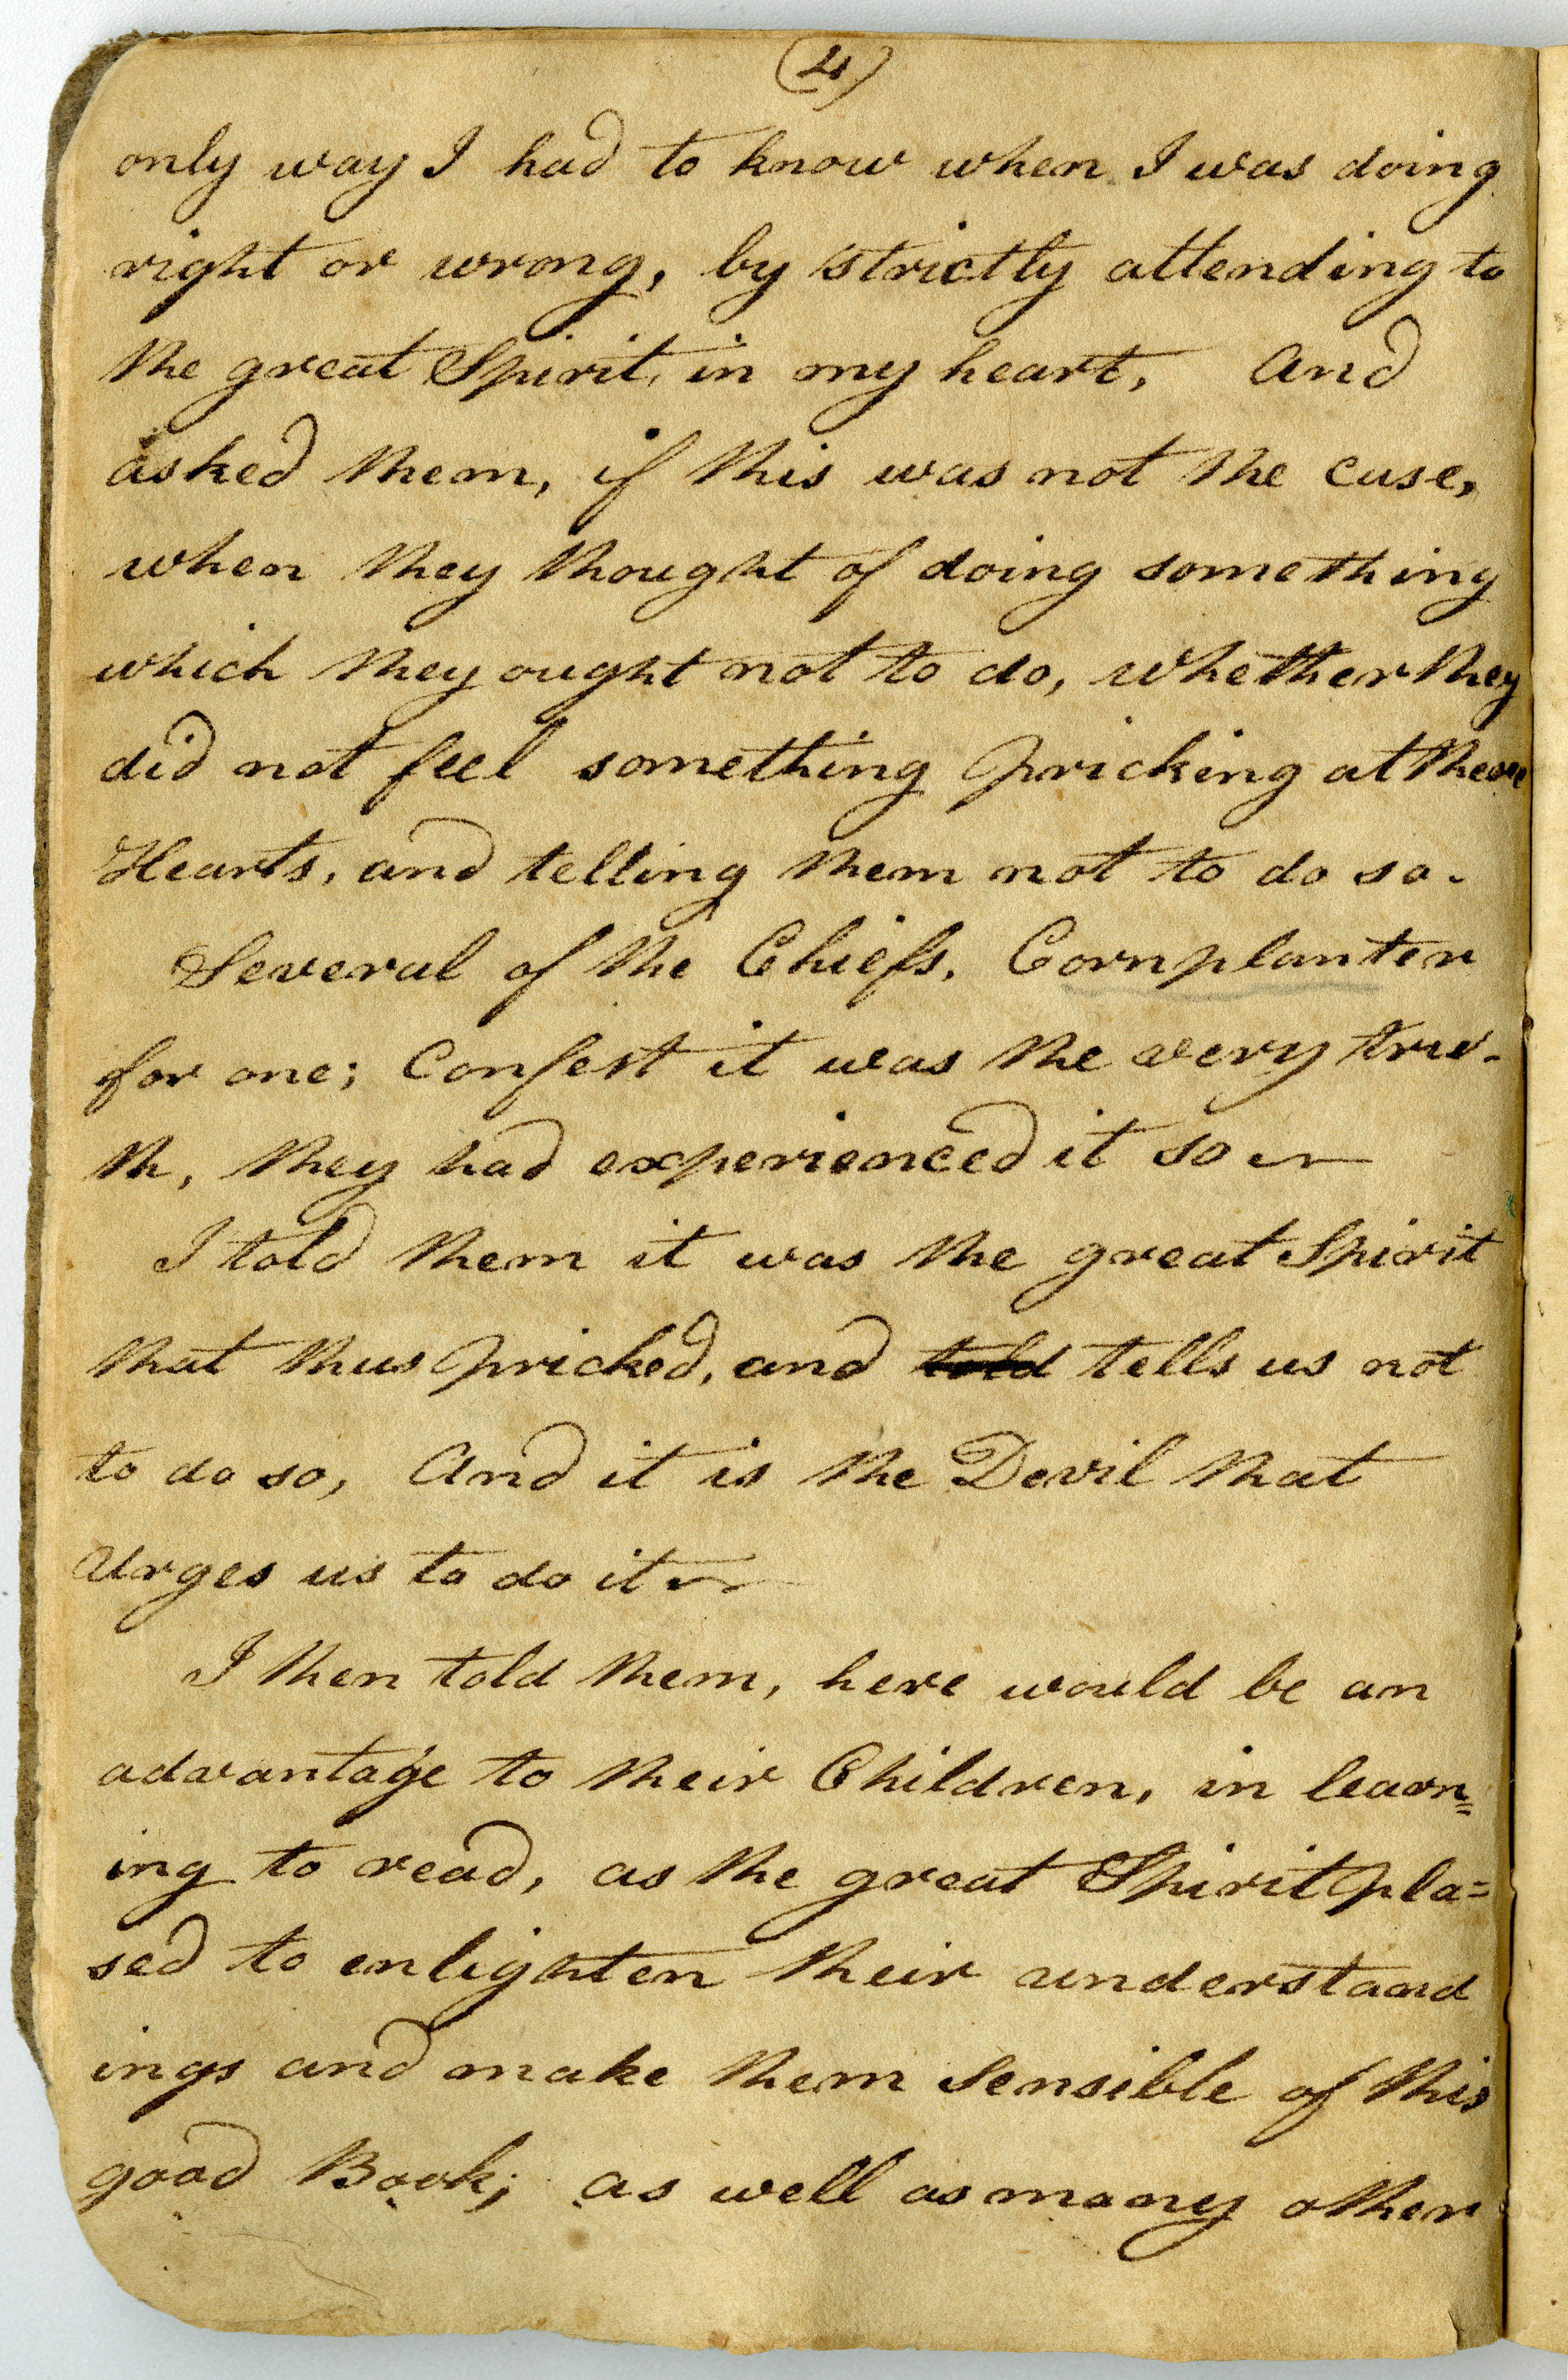 (4)
only way I had to know when I was doing
right or wrong, by strictly attending to
the great Spirit, in my heart, And
asked them, if this was not the case,
when they thought of doing something
which they ought not to do, whether they
did not feel something pricking at
Hearts, and telling them not to do so.
Several of the Chiefs, Cornplanter
for one; Confest it was the very tru-
th, they had experienced it so
I told them it was the great Spirit
that thus pricked, and told tells us not
to do so, And it is the Devil that
Urges us to do it
I then told them, here would be an
advantage to their Children, in learn=
ing to read, as the great Spirit plea=
sed to enlighten their understand
ings and make them Sensible of this
good Book; as well as many other